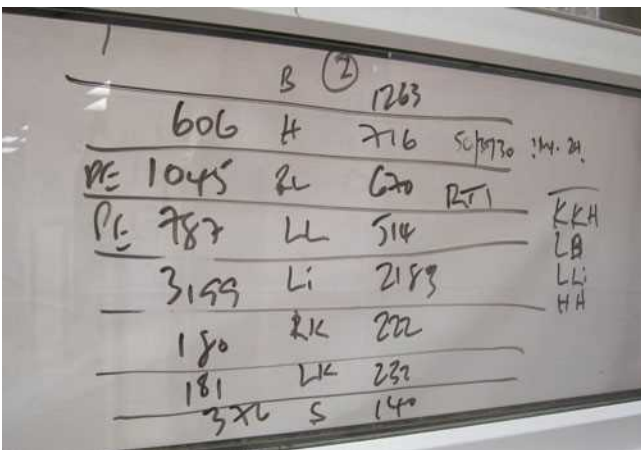 B ② 1263
606 H 716
PE 1045 RL 670 RTI
PE 787 LL 514
3199 Li 2183
180 RK 222
181 LK 232
S 140
KKH
LB
LLi
HH